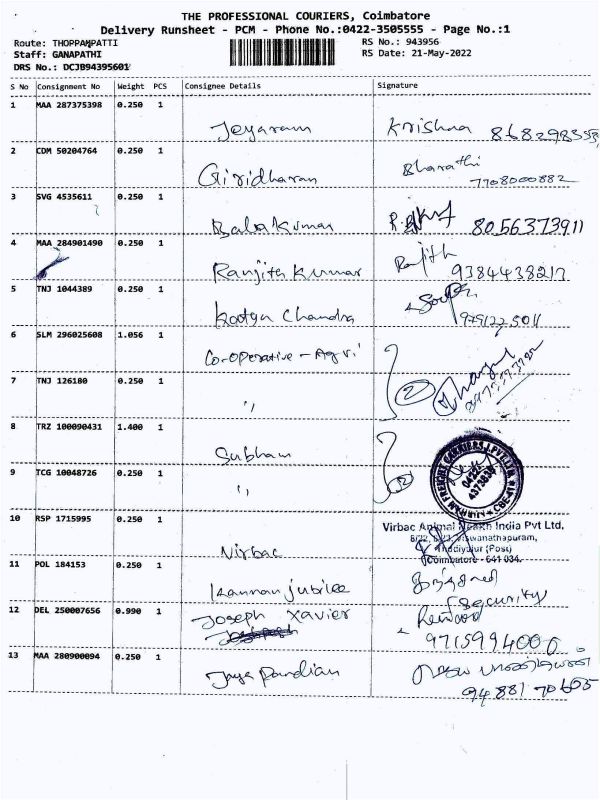 THE PROFESSIONAL COURIERS, Coimbatore
Delivery Runsheet - PCM - Phone No.:0422-3505555 - Page No.:1
Route: THOPPAMPATTI RS No.: 943956
Staff: GANAPATHI RS Date: 21-May-2022
DRS No.: DCJB94395601
S No Consignment No Weight PCS Consignee Details Signature
1 MAA 287375398 0.250 1
Jeyaram Krishna
2 CDM 50204764 0.250 1
Giridharan Bharathi 7708000882
3 SVG 4535611 0.250 1
Balakumar 8056373911
4 MAA 284901490 0.250 1
Ranjith Kumar Ranjith 9384438217
5 TNJ 1044389 0.250 1
Chandra
6 SLM 296025608 1.056 1
Co-operative - Agri
7 TNJ 126180 0.250 1
" 2
8 TRZ 100090431 1.400 1
Subham
9 TCG 10048726 0.250 1
" 2
10 RSP 1715995 0.250 1
Virbac Virbac Animal Health India Pvt Ltd,
Viswanathapuram,
Thudiyalur (Post)
Coimbatore - 641 034.
11 POL 184153 0.250 1
Kannan jubilee
security
12 DEL 250007656 0.990 1
Joseph Xavier
9715994006
13 MAA 280900094 0.250 1
Jaya Pandian
9488170605